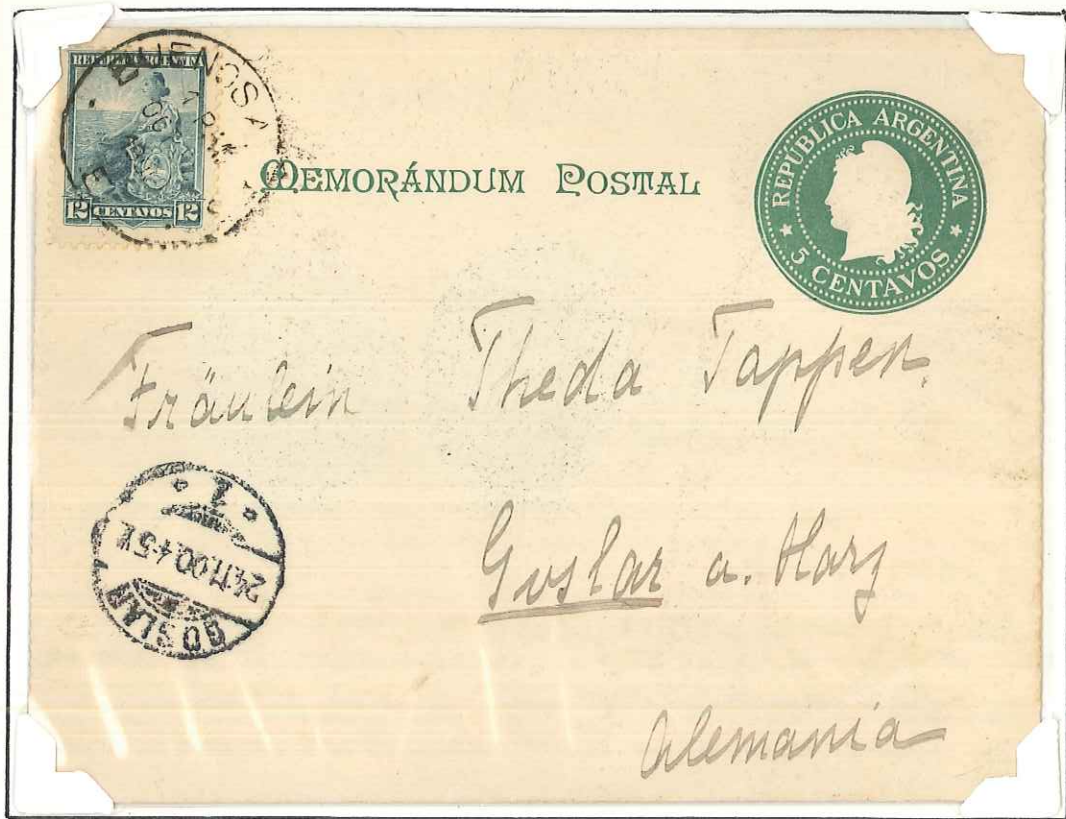 REPUBLICA ARGENTINA
12 CENTAVOS 12
BUENOS A
MEMORÁNDUM POSTAL
REPUBLICA ARGENTINA
* 5 CENTAVOS *
Fräulein Theda Tappen.
Goslar a. Harz
Alemania
1
24.11.00.4-5 N
GOSLAR